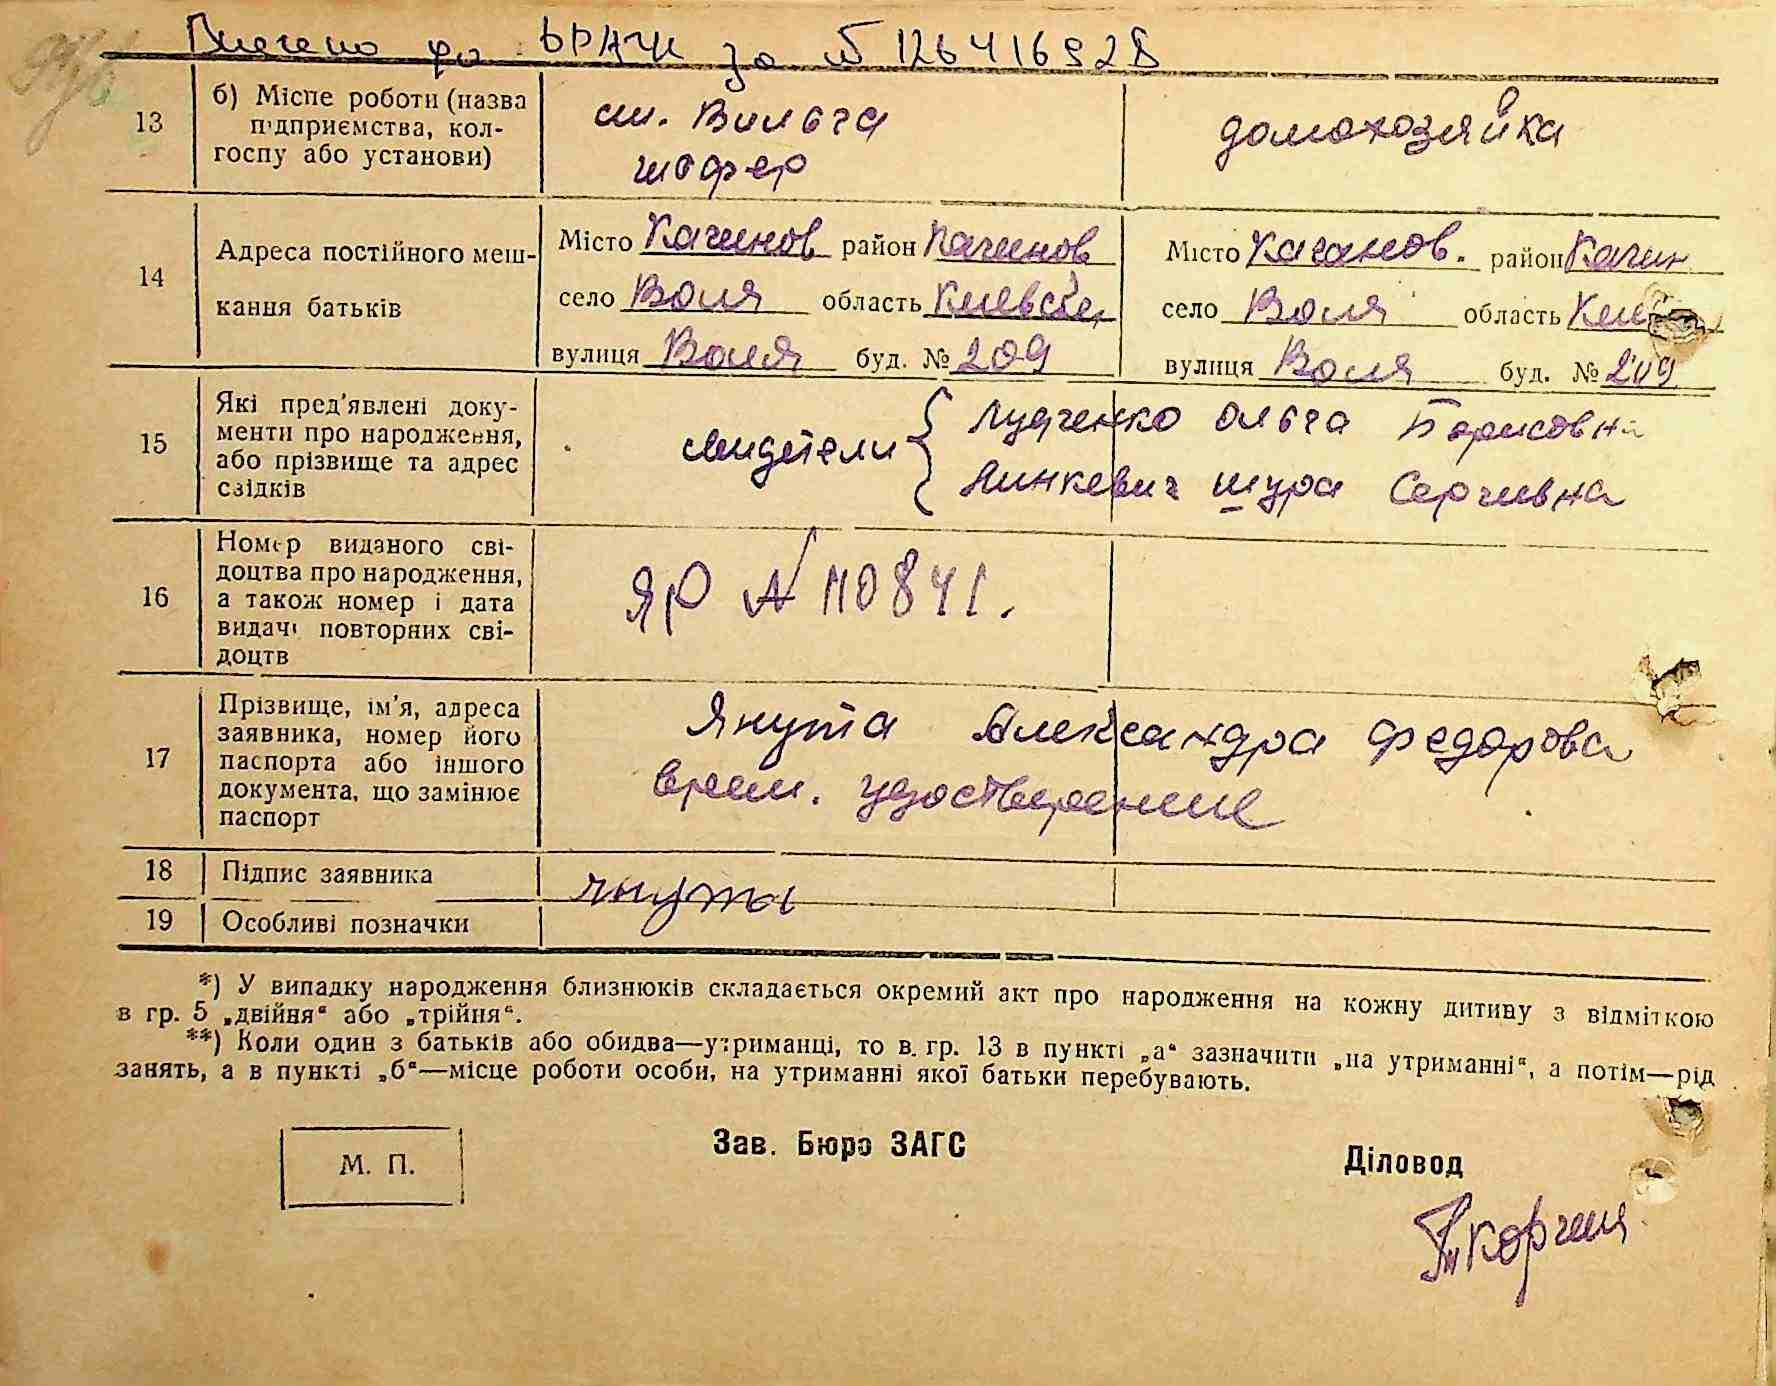 Внесено до ДРАЦС за № 126416928
13
б) Місце роботи (назва підприємства, колгоспу або установи)
ст. Вильча
шофер
домохозяйка
14
Адреса постійного мешкання батьків
Місто Качинов район Качинов
село Воля область Киевская
вулиця Воля буд. № 209
Місто Каганов. район Качин
село Воля область Кие
вулиця Воля буд. № 209
15
Які пред'явлені документи про народження, або прізвище та адрес свідків
свидетели
Лудченко Ольга Борисовна
Линкевич Шура Сергивна
16
Номер виданого свідоцтва про народження, а також номер і дата видачі повторних свідоцтв
ЯР № 110841.
17
Прізвище, ім'я, адреса заявника, номер його паспорта або іншого документа, що замінює паспорт
Янута Александра Федорова
врем. удостверение
18
Підпис заявника
Януты
19
Особливі позначки
*) У випадку народження близнюків складається окремий акт про народження на кожну дитину з відміткою
в гр. 5 „двійня“ або „трійня“.
**) Коли один з батьків або обидва—утриманці, то в гр. 13 в пункті „а“ зазначити „на утриманні“, а потім—рід
занять, а в пункті „б“—місце роботи особи, на утриманні якої батьки перебувають.
М. П.
Зав. Бюро ЗАГС
Діловод